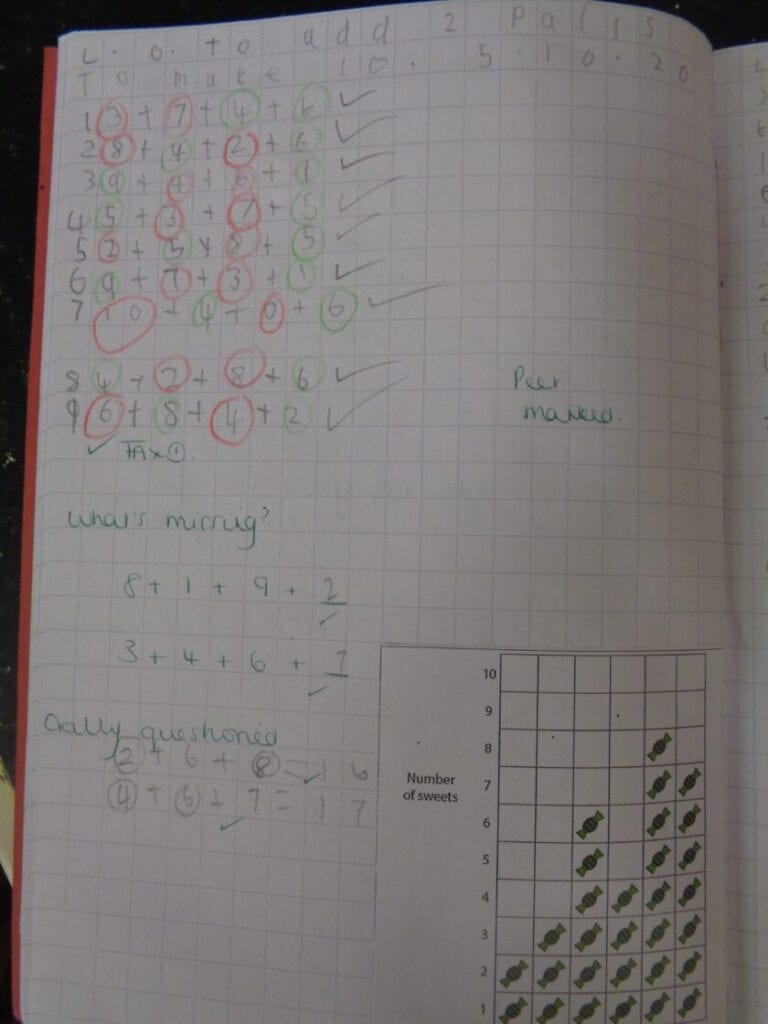 L. o. to add 2 pairs
To make 10. 5.10.20
1 3 + 7 + 4 + 6 ✓
2 8 + 4 + 2 + 6 ✓
3 9 + 4 + 6 + 1 ✓
4 5 + 3 + 7 + 5 ✓
5 2 + 5 + 8 + 5 ✓
6 9 + 7 + 3 + 1 ✓
7 10 + 4 + 0 + 6 ✓
8 4 + 2 + 8 + 6 ✓
9 6 + 8 + 4 + 2 ✓
Peer
marked.
✓ TA x 1.
what's missing?
8 + 1 + 9 + 2
✓
3 + 4 + 6 + 7
✓
Orally questioned
2 + 6 + 8 = 16
4 + 6 + 7 = 17
✓
Number
of sweets
10
9
8
7
6
5
4
3
2
1